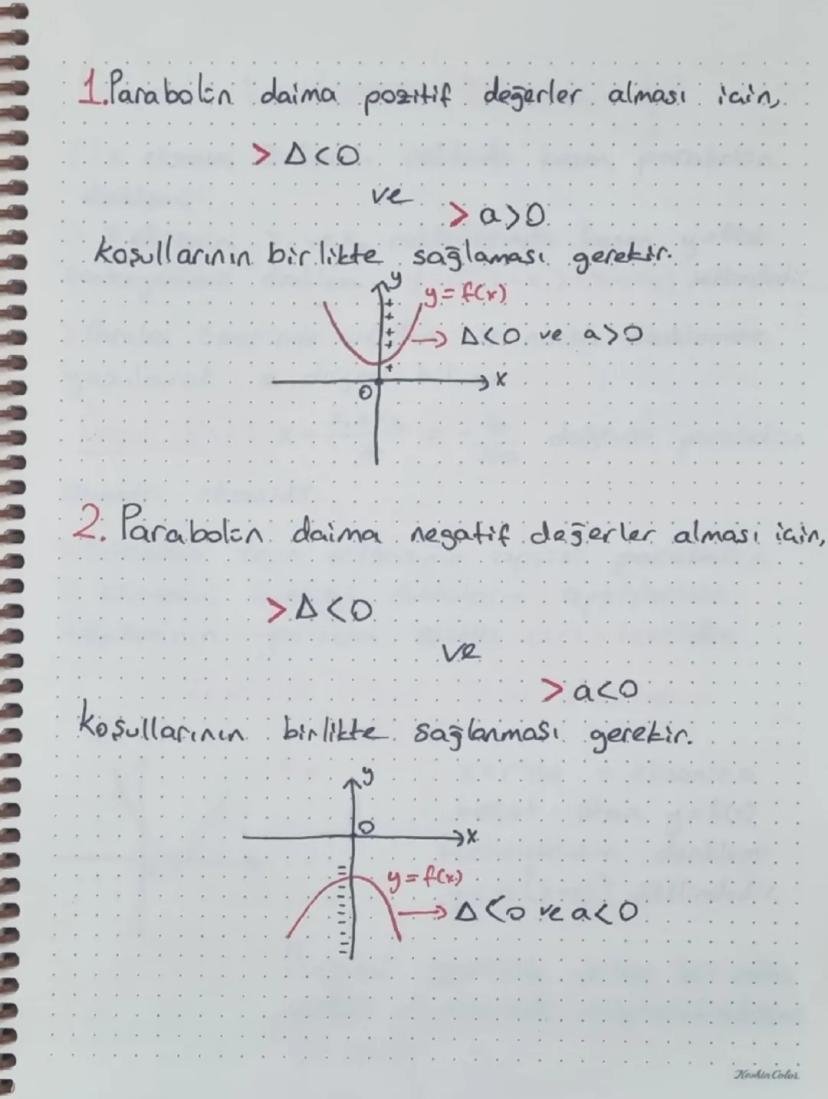 1. Parabolün daima pozitif değerler alması için,
> Δ<0
ve
> a>0
koşullarının birlikte sağlaması gerekir.
y
y=f(x)
→ Δ<0 ve a>0
O
x
2. Parabolün daima negatif değerler alması için,
> Δ<0
ve
> a<0
koşullarının birlikte sağlanması gerekir.
y
O
x
y=f(x)
→ Δ<0 ve a<0
Keskin Color